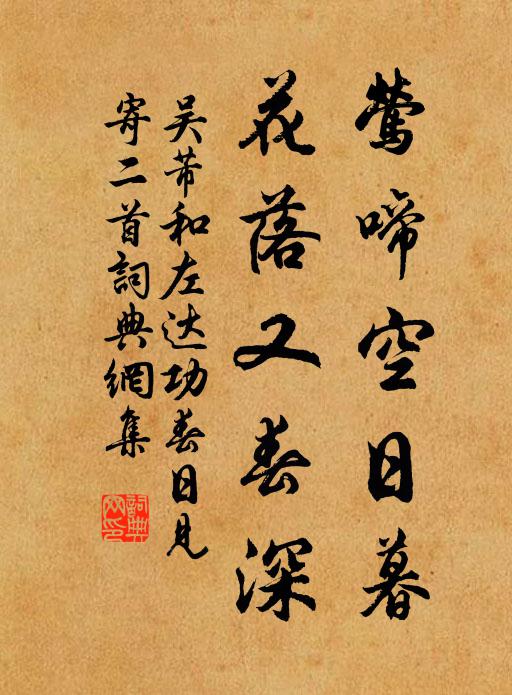 莺啼空日暮
花落又春深
吴芾和左达功春日见
寄二首詞典網集
詞典網印